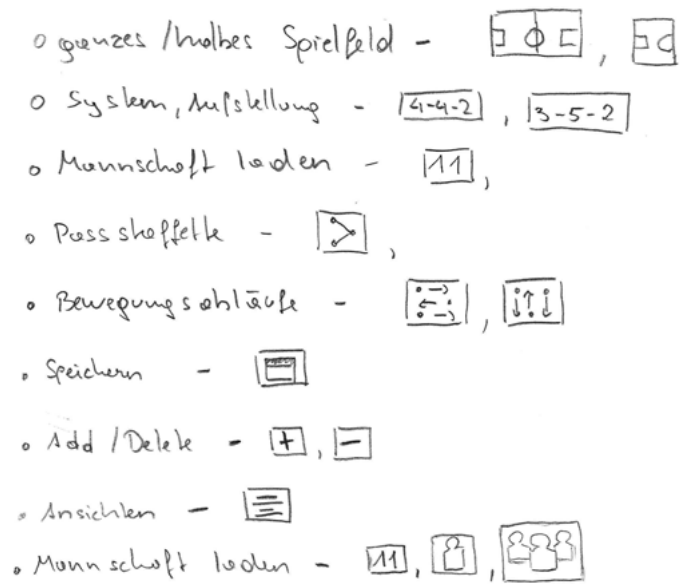 o ganzes / halbes Spielfeld - ,
o System, Aufstellung - 4-4-2 , 3-5-2
o Mannschaft laden - 11 ,
o Passstaffette - ,
o Bewegungsabläufe - ,
o Speichern -
o Add / Delete - + , -
o Ansichten -
o Mannschaft laden - 11 , ,